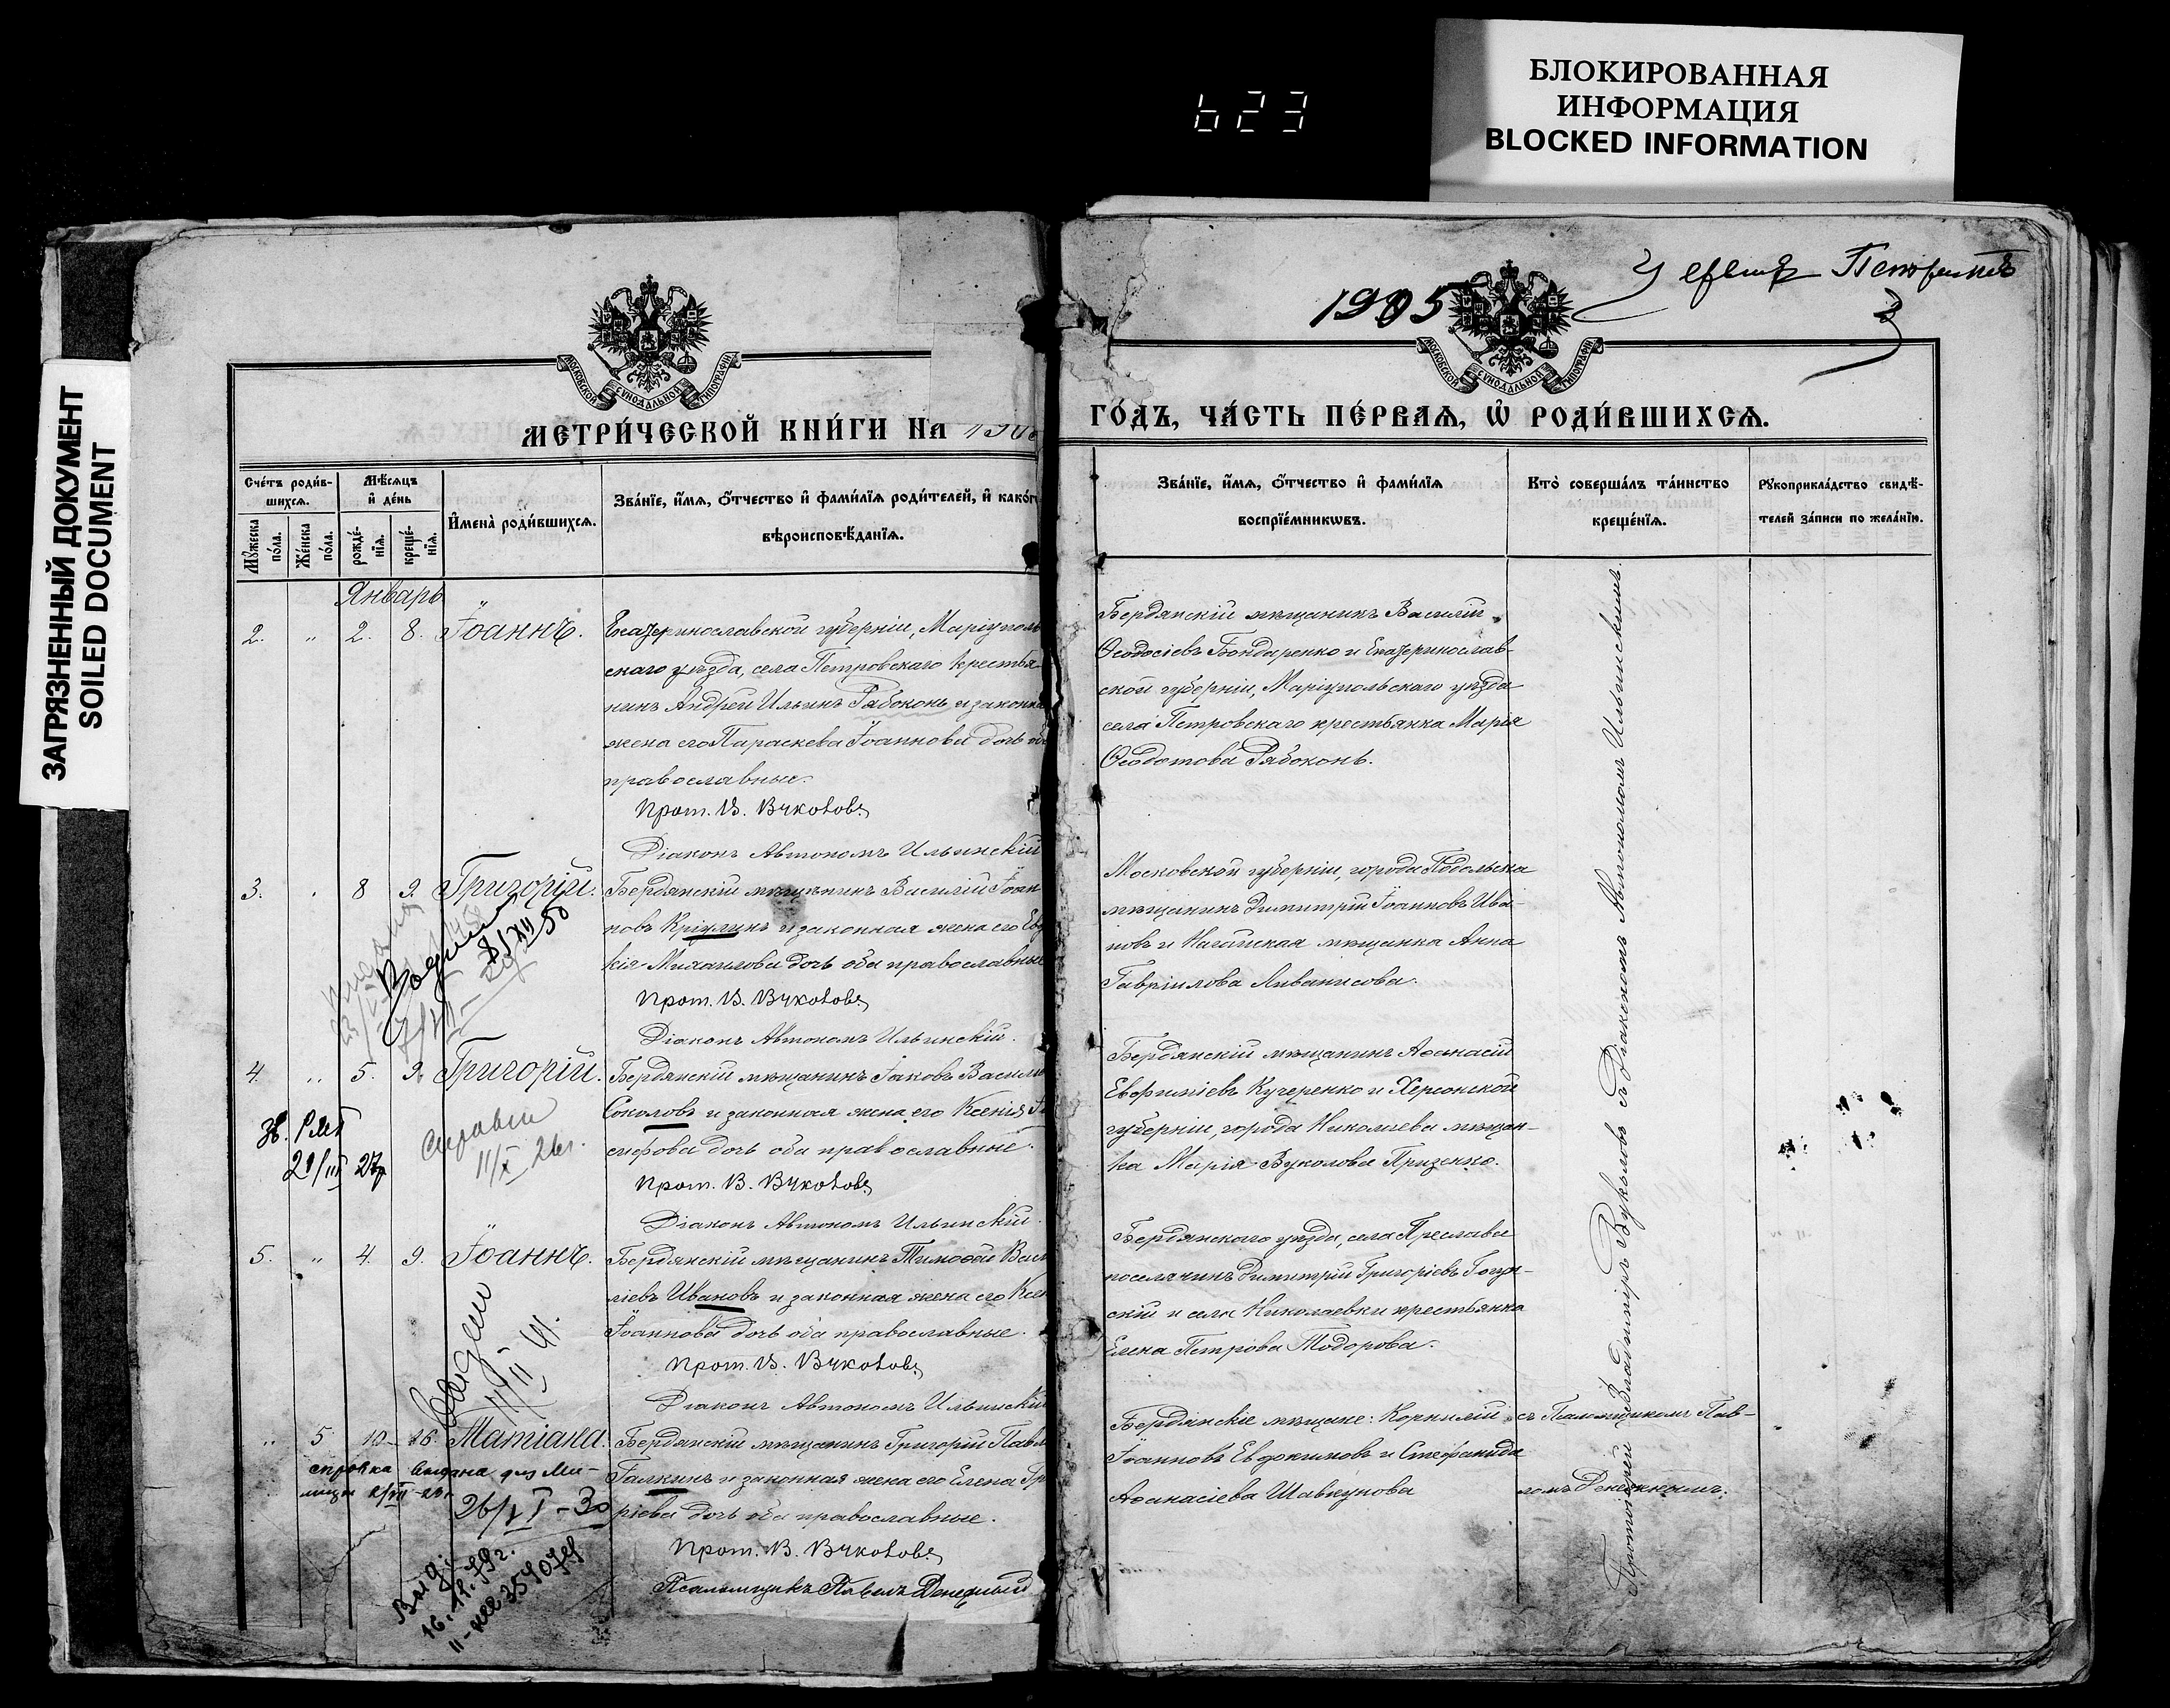 БЛОКИРОВАННАЯ
ИНФОРМАЦИЯ
BLOCKED INFORMATION
623
ЗАГРЯЗНЕННЫЙ ДОКУМЕНТ
SOILED DOCUMENT
1905
МОСКОВСКОЙ СУНОДАЛЬНОЙ ТИПОГРАФІИ
МОСКОВСКОЙ СУНОДАЛЬНОЙ ТИПОГРАФІИ
МЕТРИ́ЧЕСКОЙ КНИ́ГИ НА
ГО́ДЪ, ЧА́СТЬ ПЕ́РВАѦ, Ѽ РОДИ́ВШИХСѦ.
Сче́тъ роди́в-
шихсѧ.
Мꙋ́жеска по́ла.
Же́нска по́ла.
Мѣ́сѧцъ
и҆ де́нь
рожде́-
нїѧ.
креще́-
нїѧ.
И҆мена̀ роди́вшихсѧ.
Зва́нїе, и҆́мѧ, ѻ҆́тчество и҆ фами́лїѧ роди́телей, и҆ како́г
вѣроисповѣ́данїѧ.
Зва́нїе, и҆́мѧ, ѻ҆́тчество и҆ фами́лїѧ
воспрїе́мникѡвъ.
Кто̀ соверша́лъ та́инство
креще́нїѧ.
Рꙋкоприкла́дство свидѣ́-
телей за́писи по жела́нїю.
Январь
2. „ 2. 8. Іоаннъ.
Екатеринославской губерніи, Маріуполь
скаго уѣзда, села Петровскаго крестья
нинъ Андрей Ильинъ Рябоконь и законн
жена его Параскева Іоаннова дочь об
православные.
Прот. В. Вуколовъ
Діаконъ Автономъ Ильинскій
Бердянскій мѣщанинъ Василій
Ѳеодосіевъ Бондаренко и Екатеринослав-
ской губерніи, Маріупольскаго уѣзда
села Петровскаго крестьянка Марія
Ѳеодотова Рябоконь.
3. 8 9. Григорій.
Бердянскій мѣщанинъ Василій Іоан
новъ Кріулинъ и законная жена его Евд
кія Михаилова дочь оба православные
Прот. В. Вуколовъ
Діаконъ Автономъ Ильинскій.
Московской губерніи, города Подольска
мѣщанинъ Димитрій Іоанновъ Ива-
новъ и Ногайская мѣщанка Анна
Гавріилова Ливанисова.
8/XII 50
4. „ 5. 9. Григорій.
Бердянскій мѣщанинъ Іаковъ Василь
Соколовъ и законная жена его Ксенія
сифова дочь оба православные.
Прот. В. Вуколовъ
Діаконъ Автономъ Ильинскій.
Бердянскій мѣщанинъ Аѳанасій
Евфиміевъ Кучеренко и Херсонской
губерніи, города Николаева мѣщан-
ка Марія Вуколова Призенко.
21/III 27г
справки
11/X 26г.
5. „ 4. 9. Іоаннъ.
Бердянскій мѣщанинъ Тимоѳей Васи
ліевъ Ивановъ и законная жена его Ксен
Іоаннова дочь оба православные.
Прот. В. Вуколовъ
Діаконъ Автономъ Ильинскій
Бердянскаго уѣзда, села Преслава
поселянинъ Димитрій Григоріевъ
скій и села Николаевки крестьянка
Елена Петрова Тодорова.
„ 5 10 16. Татіана.
Бердянскій мѣщанинъ Григорій Павл
Галкинъ и законная жена его Елена Гр
ріева дочь оба православные.
Прот. В. Вуколовъ
Псаломщикъ Павелъ Денежный
Бердянскіе мѣщане: Корнилій
Іоанновъ Евдокимовъ и Стефанида
Аѳанасіева Шавкунова
съ Псаломщикомъ Пав-
ломъ Денежнымъ.
Протоіерей Владиміръ Вуколовъ съ Діакономъ Автономомъ Ильинскимъ.
справка выдана для Ми-
лиции
26/XI-30
Выд.